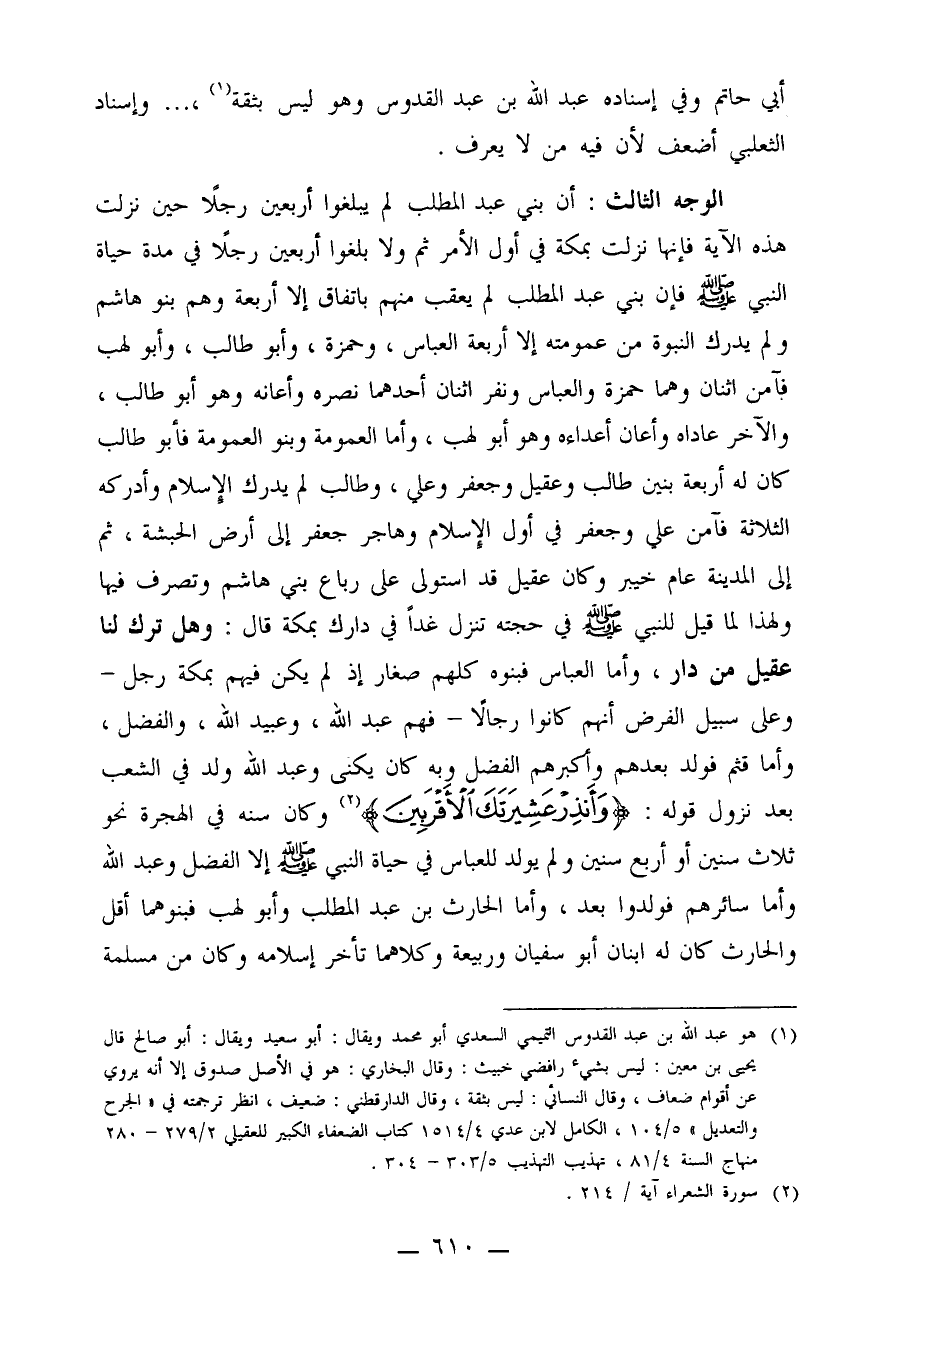 أبي حاتم وفي إسناده عبد الله بن عبد القدوس وهو ليس بثقة(١) ،... وإسناد
الثعلبي أضعف لأن فيه من لا يعرف .
الوجه الثالث : أن بني عبد المطلب لم يبلغوا أربعين رجلًا حين نزلت
هذه الآية فإنها نزلت بمكة في أول الأمر ثم ولا بلغوا أربعين رجلًا في مدة حياة
النبي ﷺ فإن بني عبد المطلب لم يعقب منهم باتفاق إلا أربعة وهم بنو هاشم
ولم يدرك النبوة من عمومته إلا أربعة العباس ، وحمزة ، وأبو طالب ، وأبو لهب
فآمن اثنان وهما حمزة والعباس ونفر اثنان أحدهما نصره وأعانه وهو أبو طالب ،
والآخر عاداه وأعان أعداءه وهو أبو لهب ، وأما العمومة وبنو العمومة فأبو طالب
كان له أربعة بنين طالب وعقيل وجعفر وعلي ، وطالب لم يدرك الإسلام وأدركه
الثلاثة فآمن علي وجعفر في أول الإسلام وهاجر جعفر إلى أرض الحبشة ، ثم
إلى المدينة عام خيبر وكان عقيل قد استولى على رباع بني هاشم وتصرف فيها
ولهذا لما قيل للنبي ﷺ في حجته تنزل غداً في دارك بمكة قال : وهل ترك لنا
عقيل من دار ، وأما العباس فبنوه كلهم صغار إذ لم يكن فيهم بمكة رجل –
وعلى سبيل الفرض أنهم كانوا رجالًا – فهم عبد الله ، وعبيد الله ، والفضل ،
وأما قثم فولد بعدهم وأكبرهم الفضل وبه كان يكنى وعبد الله ولد في الشعب
بعد نزول قوله : ﴿وَأَنذِرْ عَشِيرَتَكَ ٱلْأَقْرَبِينَ﴾(٢) وكان سنه في الهجرة نحو
ثلاث سنين أو أربع سنين ولم يولد للعباس في حياة النبي ﷺ إلا الفضل وعبد الله
وأما سائرهم فولدوا بعد ، وأما الحارث بن عبد المطلب وأبو لهب فبنوهما أقل
والحارث كان له ابنان أبو سفيان وربيعة وكلاهما تأخر إسلامه وكان من مسلمة
(١) هو عبد الله بن عبد القدوس التميمي السعدي أبو محمد ويقال : أبو سعيد ويقال : أبو صالح قال
يحيى بن معين : ليس بشيء رافضي خبيث : وقال البخاري : هو في الأصل صدوق إلا أنه يروي
عن أقوام ضعاف ، وقال النسائي : ليس بثقة ، وقال الدارقطني : ضعيف ، انظر ترجمته في « الجرح
والتعديل » ١٠٤/٥ ، الكامل لابن عدي ١٥١٤/٤ كتاب الضعفاء الكبير للعقيلي ٢٧٩/٢ – ٢٨٠
منهاج السنة ٨١/٤ ، تهذيب التهذيب ٣٠٣/٥ – ٣٠٤ .
(٢) سورة الشعراء آية / ٢١٤ .
— ٦١٠ —